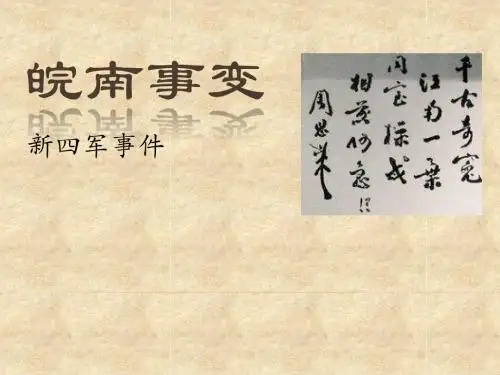 皖南事变
新四军事件
千古奇冤
江南一葉
同室操戈
相煎何急?!
周恩来